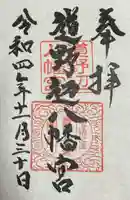 奉拝
道野辺八幡宮
令和四年十一月三十日